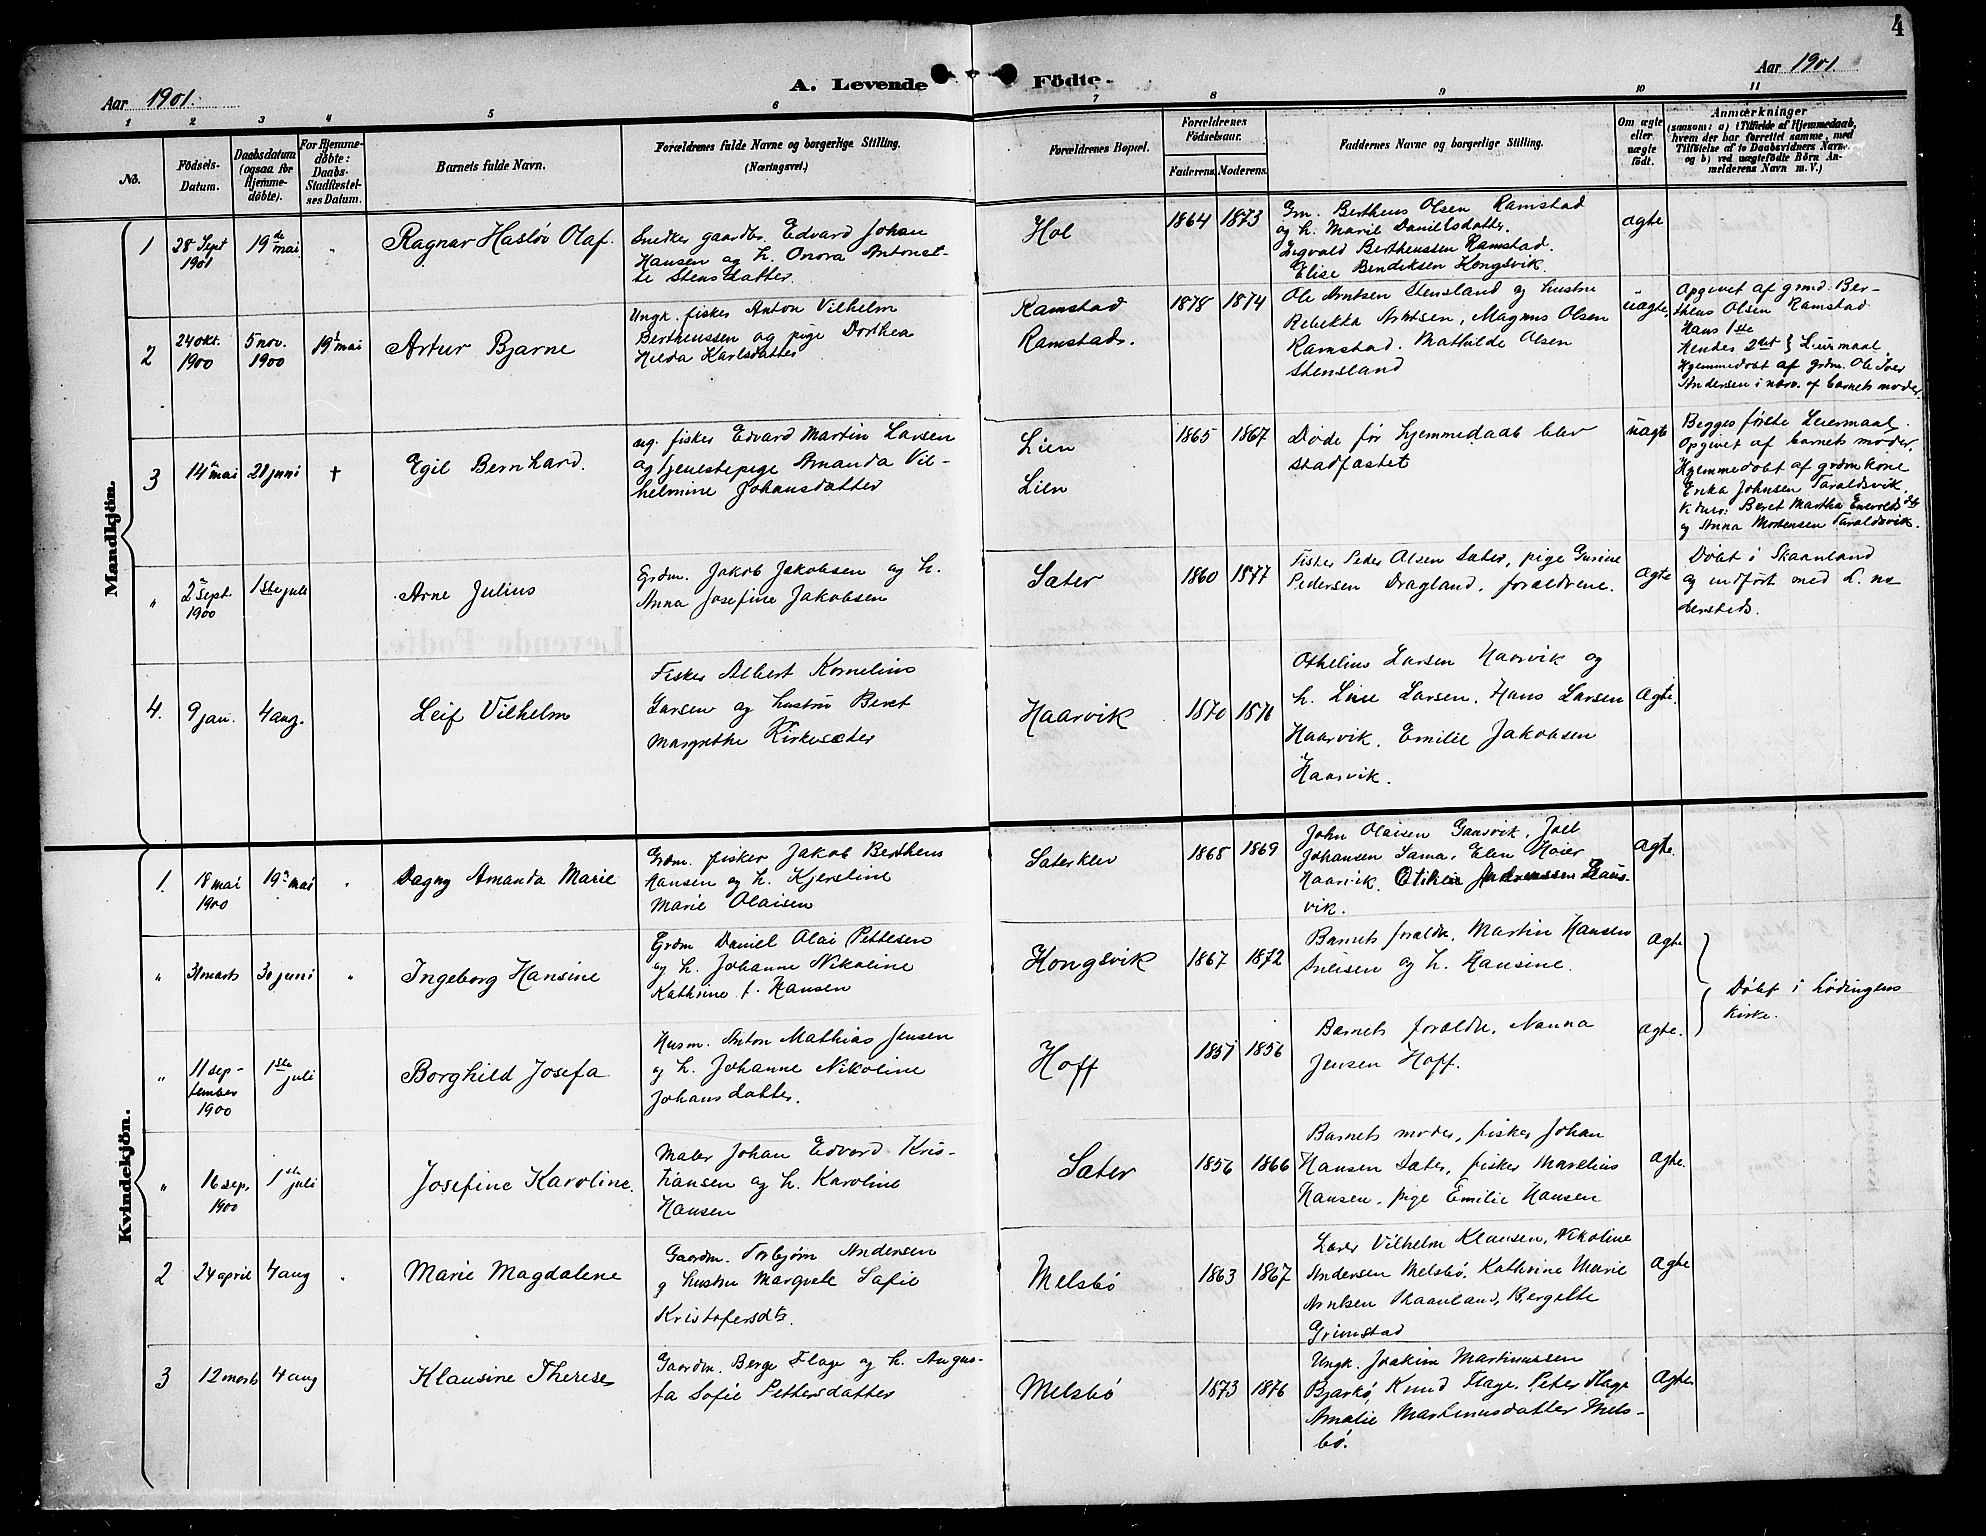 4
Aar 1901.
A. Levende Födte.
Aar 1901.
1 2 3 4 5 6 7 8 9 10 11
No.
Födsels-
Datum.
Daabsdatum
(ogsaa for
Hjemme-
döbte).
For Hjemme-
döbte:
Daabs-
Stadfæstel-
ses Datum.
Barnets fulde Navn.
Forældrenes fulde Navne og borgerlige Stilling.
(Næringsvei.)
Forældrenes Bopæl.
Forældrenes
Födselsaar.
Faderens. Moderens.
Faddernes Navne og borgerlige Stilling.
Om ægte
eller
uægte
födt.
Anmærkninger
(saasom: a) i Tilfælde af Hjemmedaab,
hvem der har forrettet samme, med
Tilföielse af to Daabsvidners Navne
og b) ved uægtefödte Börn An-
melderens Navn m. V.)
Mandkjön.
1
28 Sept
1901
19de mai
"
Ragnar Hasløv Olaf.
Snedker gaardbr. Edvard Johan
Hansen og h. Onora Antonet-
te Stensdatter.
Hol
1864
1873
Gm. Bertheus Olsen Ramstad
og h. Marie Danielsdatter.
Sigvald Bertheussen Ramstad.
Elise Bendiksen Kongsvik.
ægte
2
24 okt.
1900
5 nov.
1900
19de mai
Artur Bjarne
Ungk. fisker Anton Vilhelm
Bertheussen og pige Dorthea
Hilda Karlsdatter
Ramstad
Ramstad.
1878
1874
Ole Arntsen Stensland og hustru
Rebekka Arntsen, Magnus Olsen
Ramstad. Mathilde Olsen
Stensland
uægte
Opgivet af grmd. Ber-
theus Olsen Ramstad
Hans 1ste
Hendes 2det } Leiermaal.
Hjemmedøbt af grdm. Ole Iver
Andersen i nærv. af barnets moder.
3
14de mai
21 juni
+
Egil Bernhard.
ug. fisker Edvard Martin Larsen
og tjenestepige Amanda Vil-
helmine Johansdatter
Lien
Lien
1865
1867
Døde før hjemmedaab blev
stadfæstet
uægte
Begges første Leiermaal.
Opgivet af barnets moder.
Hjemmedøbt af grdm kone
Erika Johnsen Taraldsvik.
Beret Martha
og Anna Mortensen Taraldsvik.
"
2 sept
1900
1ste juli
Arne Julius
Grdm. Jakob Jakobsen og h.
Anna Josefine Jakobsen
Sæter
1860
1877
Fisker Peder Olsen Sæter, pige Gurine
Pedersen Dragland, forældrene.
ægte
Døbt i Skaanland
og indført med L. no
dersteds.
4.
9 jan.
4 aug.
Leif Vilhelm
Fisker Albert Kornelius
Larsen og hustru Beret
Margrethe Kirkesæter
Haarvik
1870
1876
Othelius Larsen Haarvik og
h. Lise Larsen, Hans Larsen
Haarvik, Emilie Jakobsen
Haarvik.
ægte.
Kvindekjön.
1.
18 mai
1900
19de mai
"
Dagny Amanda Marie
Grdm. fisker Jakob Bertheus
Hansen og h. Kjerstine
Marie Olaisen
Sæterklev
1868
1869
John Olaisen Gausvik, Joel
Johansen Sama, Elen Hoier
Haarvik, Otihlia Andreassen Gaus-
vik.
ægte.
"
31 marts
30 juni
"
Ingeborg Hansine
Grdm Daniel Olai Pettersen
og h. Johanne Nikoline
Kathrine f. Hansen
Kongsvik
1867
1872
Barnets forældre, Martin Hansen
og h. Hansine.
ægte
Døbt i Lødingens
kirke.
"
11 sep-
tember
1900
1ste juli
Borghild Josefa
Husm. Anton Mathias Jensen
og h. Johanne Nikoline
Johansdatter.
Hoff
1851
1856
Barnets forældre, Nanna
Jensen Hoff.
ægte.
"
16 sep.
1900
1ste juli
Josefine Karoline.
Maler Johan Edvard Kris-
tiansen og h. Karoline
Hansen
Sæter
1856
1866
Barnets moder, fisker Johan
Hansen Sæter, fisker Marelius
Hansen, pige Emilie Hansen
ægte.
2
24 april
4 aug
"
Marie Magdalene
Gaardm. Torbjørn Andersen
og hustru Margrete Sofie
Kristofersdtr.
Melsbø
1863
1867
Lærer Vilhelm Klausen, Nikoline
Andersen Melsbø, Kathrine Marie
Arntsen Skaanland, Bergitte
Grimstad
ægte
3
12 marts
4 aug
Klausine Therese
Gaardm. Berge Flage og h. Augus-
ta Sofie Pettersdatter
Melsbø
1873
1876
Ungk. Joakim Martinussen
Bjarkø, Knud Flage, Peter Flage
Amalie Martinusdatter Mels-
bø.
ægte.